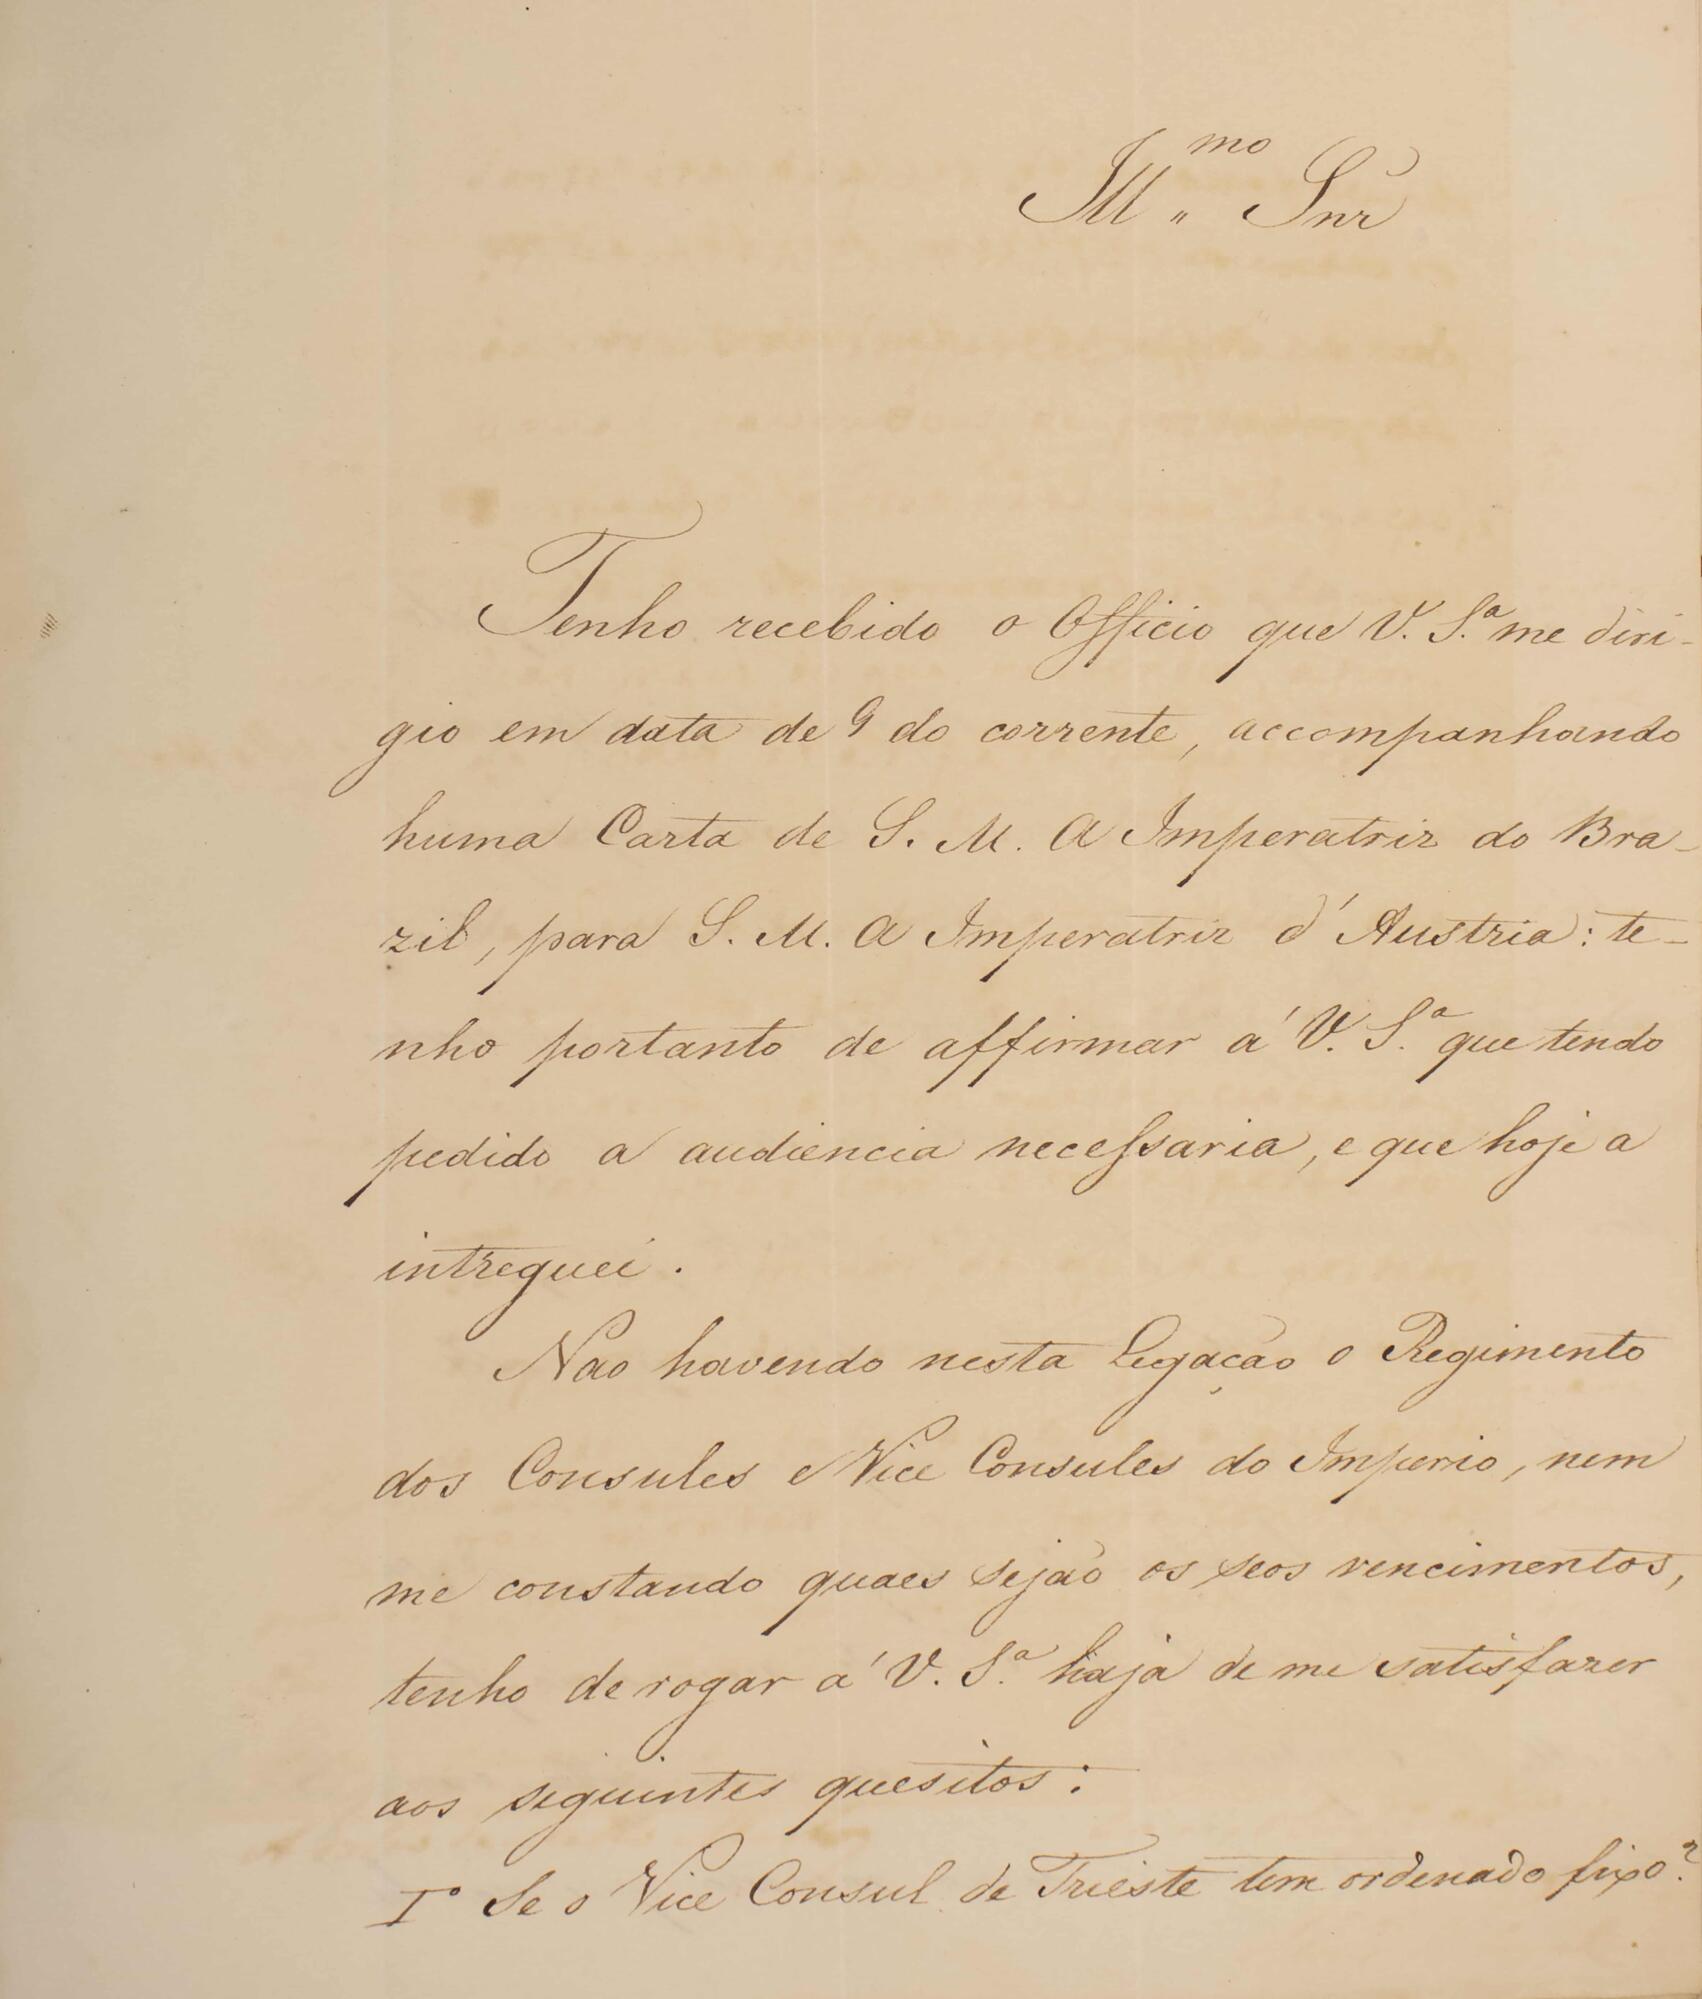 Ill.mo Snr
Tenho recebido o Officio que V. S.a me diri-
gio em data de 9 do corrente, accompanhando
huma Carta de S. M. A Imperatriz do Bra-
zil, para S. M. A Imperatriz d'Austria: te-
nho portanto de affirmar á V. S.a que tendo
pedido a audiencia necessaria, e que hoje a
intreguei.
Nao havendo nesta Legação o Regimento
dos Consules e Vice Consules do Imperio, nem
me constando quaes sejão os seos vencimentos,
tenho de rogar á V. S.a haja de me satisfazer
aos seguintes quesitos:
I° Se o Vice Consul de Trieste tem ordenado fixo?